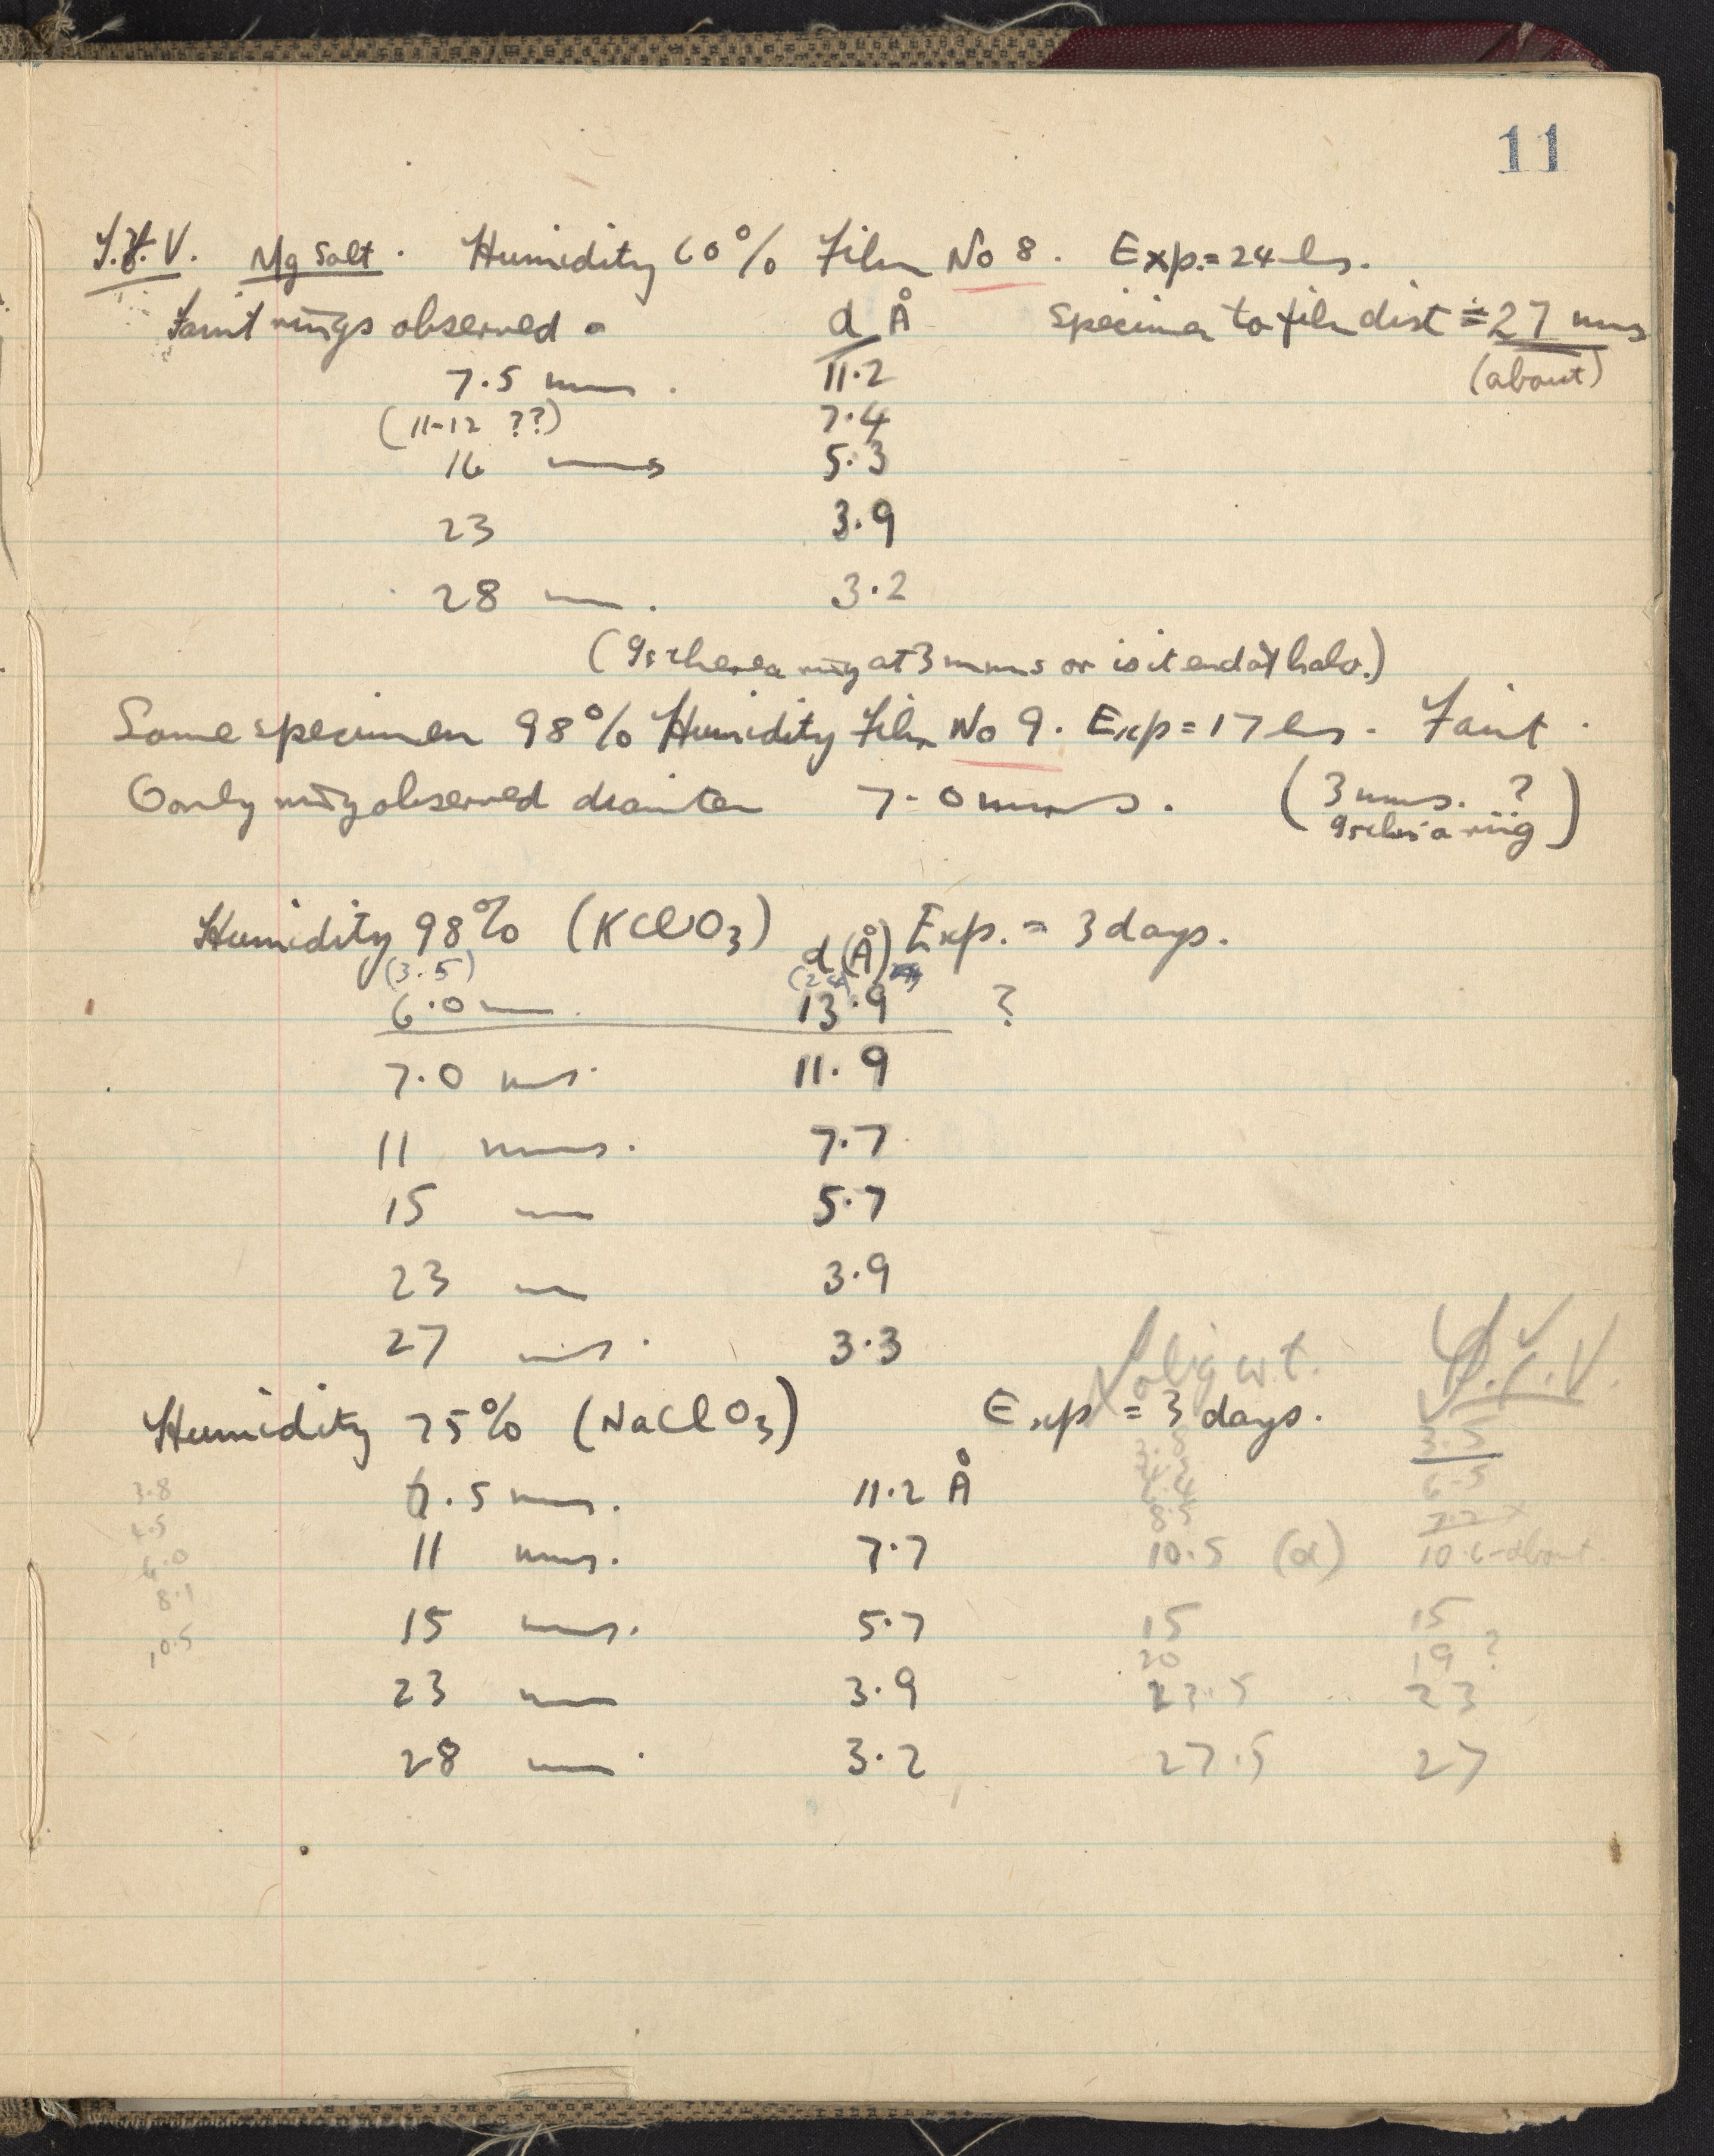 11
Mg Salt. Humidity 60% Film No 8. Exp. = 24 hrs.
Faint rings observed d Å Specimen to film dist ≑ 27 mms
7.5 mms. 11.2 (about)
(11-12 ??) 7.4
16 mms 5.3
23 3.9
28 mm. 3.2
(Is there a ring at 3 mms or is it end of halo.)
Same specimen 98% Humidity Film No 9. Exp = 17 hrs. Faint.
Only ring observed diameter 7.0 mms. (3 mms. ?
Is this a ring)
Humidity 98% (KClO3) Exp. = 3 days.
(3.5) d (Å)
6.0 mm. 13.9 ?
7.0 mms. 11.9
11 mms. 7.7
15 mm 5.7
23 mm 3.9
27 mms. 3.3
Humidity 75% (NaClO3) Exp = 3 days.
3.5
3.8 .5 mms. 11.2 Å 6.5
4.5 8.5 7.2 x
11 mms. 7.7 10.5 (d) 10.6 - about
6.0
8.1
15 mms. 5.7 15 15
10.5 20 19 ?
23 mm 3.9 23.5 23
28 mm. 3.2 27.5 27